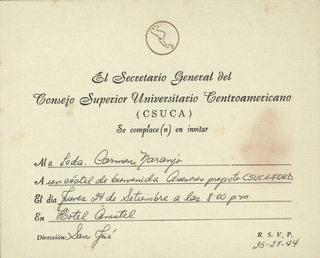 El Secretario General del
Consejo Superior Universitario Centroamericano
(CSUCA)
Se complace(n) en invitar
Al a Leda. Carmen Naranjo
A un cóctel de bienvenida Asesores proyecto CSUCA-FORD
El día Jueves 24 de Setiembre a las 8:00 p.m.
En Hotel Amstel
Dirección: San José
R. S. V. P.
25-27-44